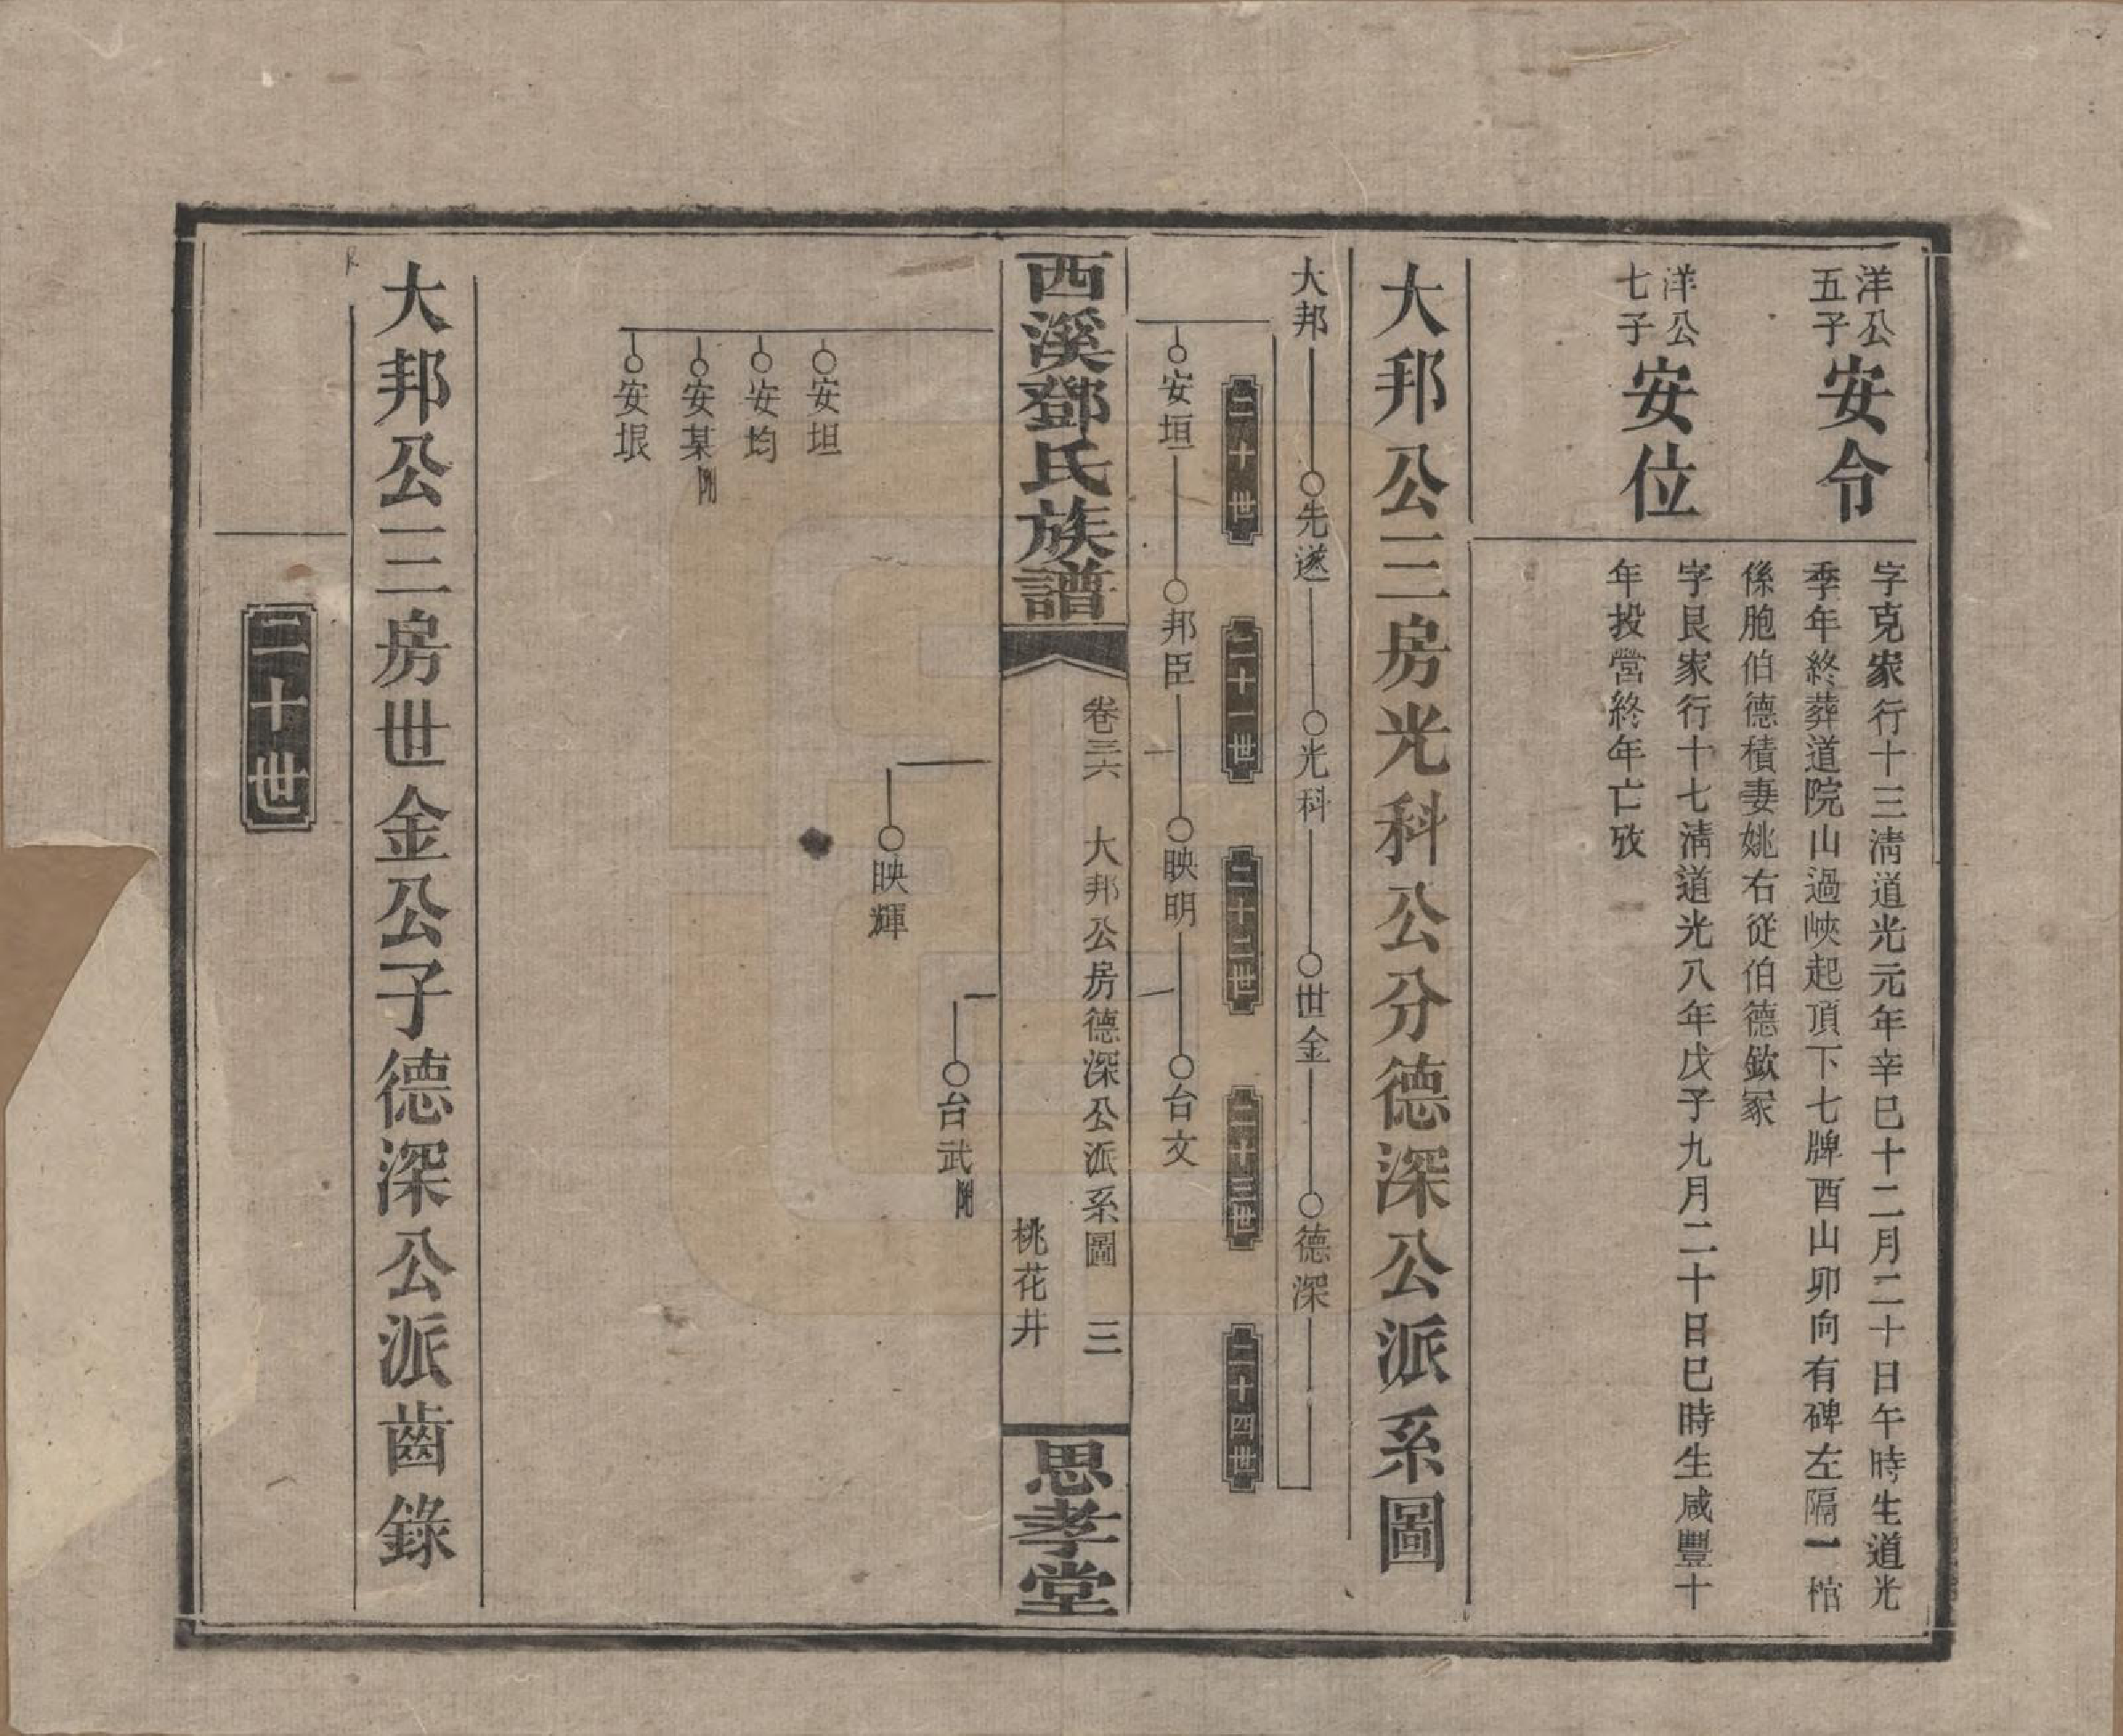 洋公
五子
安令
字克家行十三清道光元年辛巳十二月二十日午時生道光
季年終葬道院山過峽起頂下七牌酉山卯向有碑左隔一棺
係胞伯德積妻姚右從伯德欽冢
洋公
七子
安位
字艮家行十七清道光八年戊子九月二十日巳時生咸豐十
年投營終年亡攷
大邦公三房光科公分德深公派系圖
大邦 先遂 光科 世金 德深
二十世 二十一世 二十二世 二十三世 二十四世
安垣 邦臣 映明 台文
西溪鄧氏族譜
卷三六 大邦公房德深公派系圖 三
桃花井
思孝堂
台武附
映輝
安坦
安均
安某附
安垠
大邦公三房世金公子德深公派齒錄
二十世